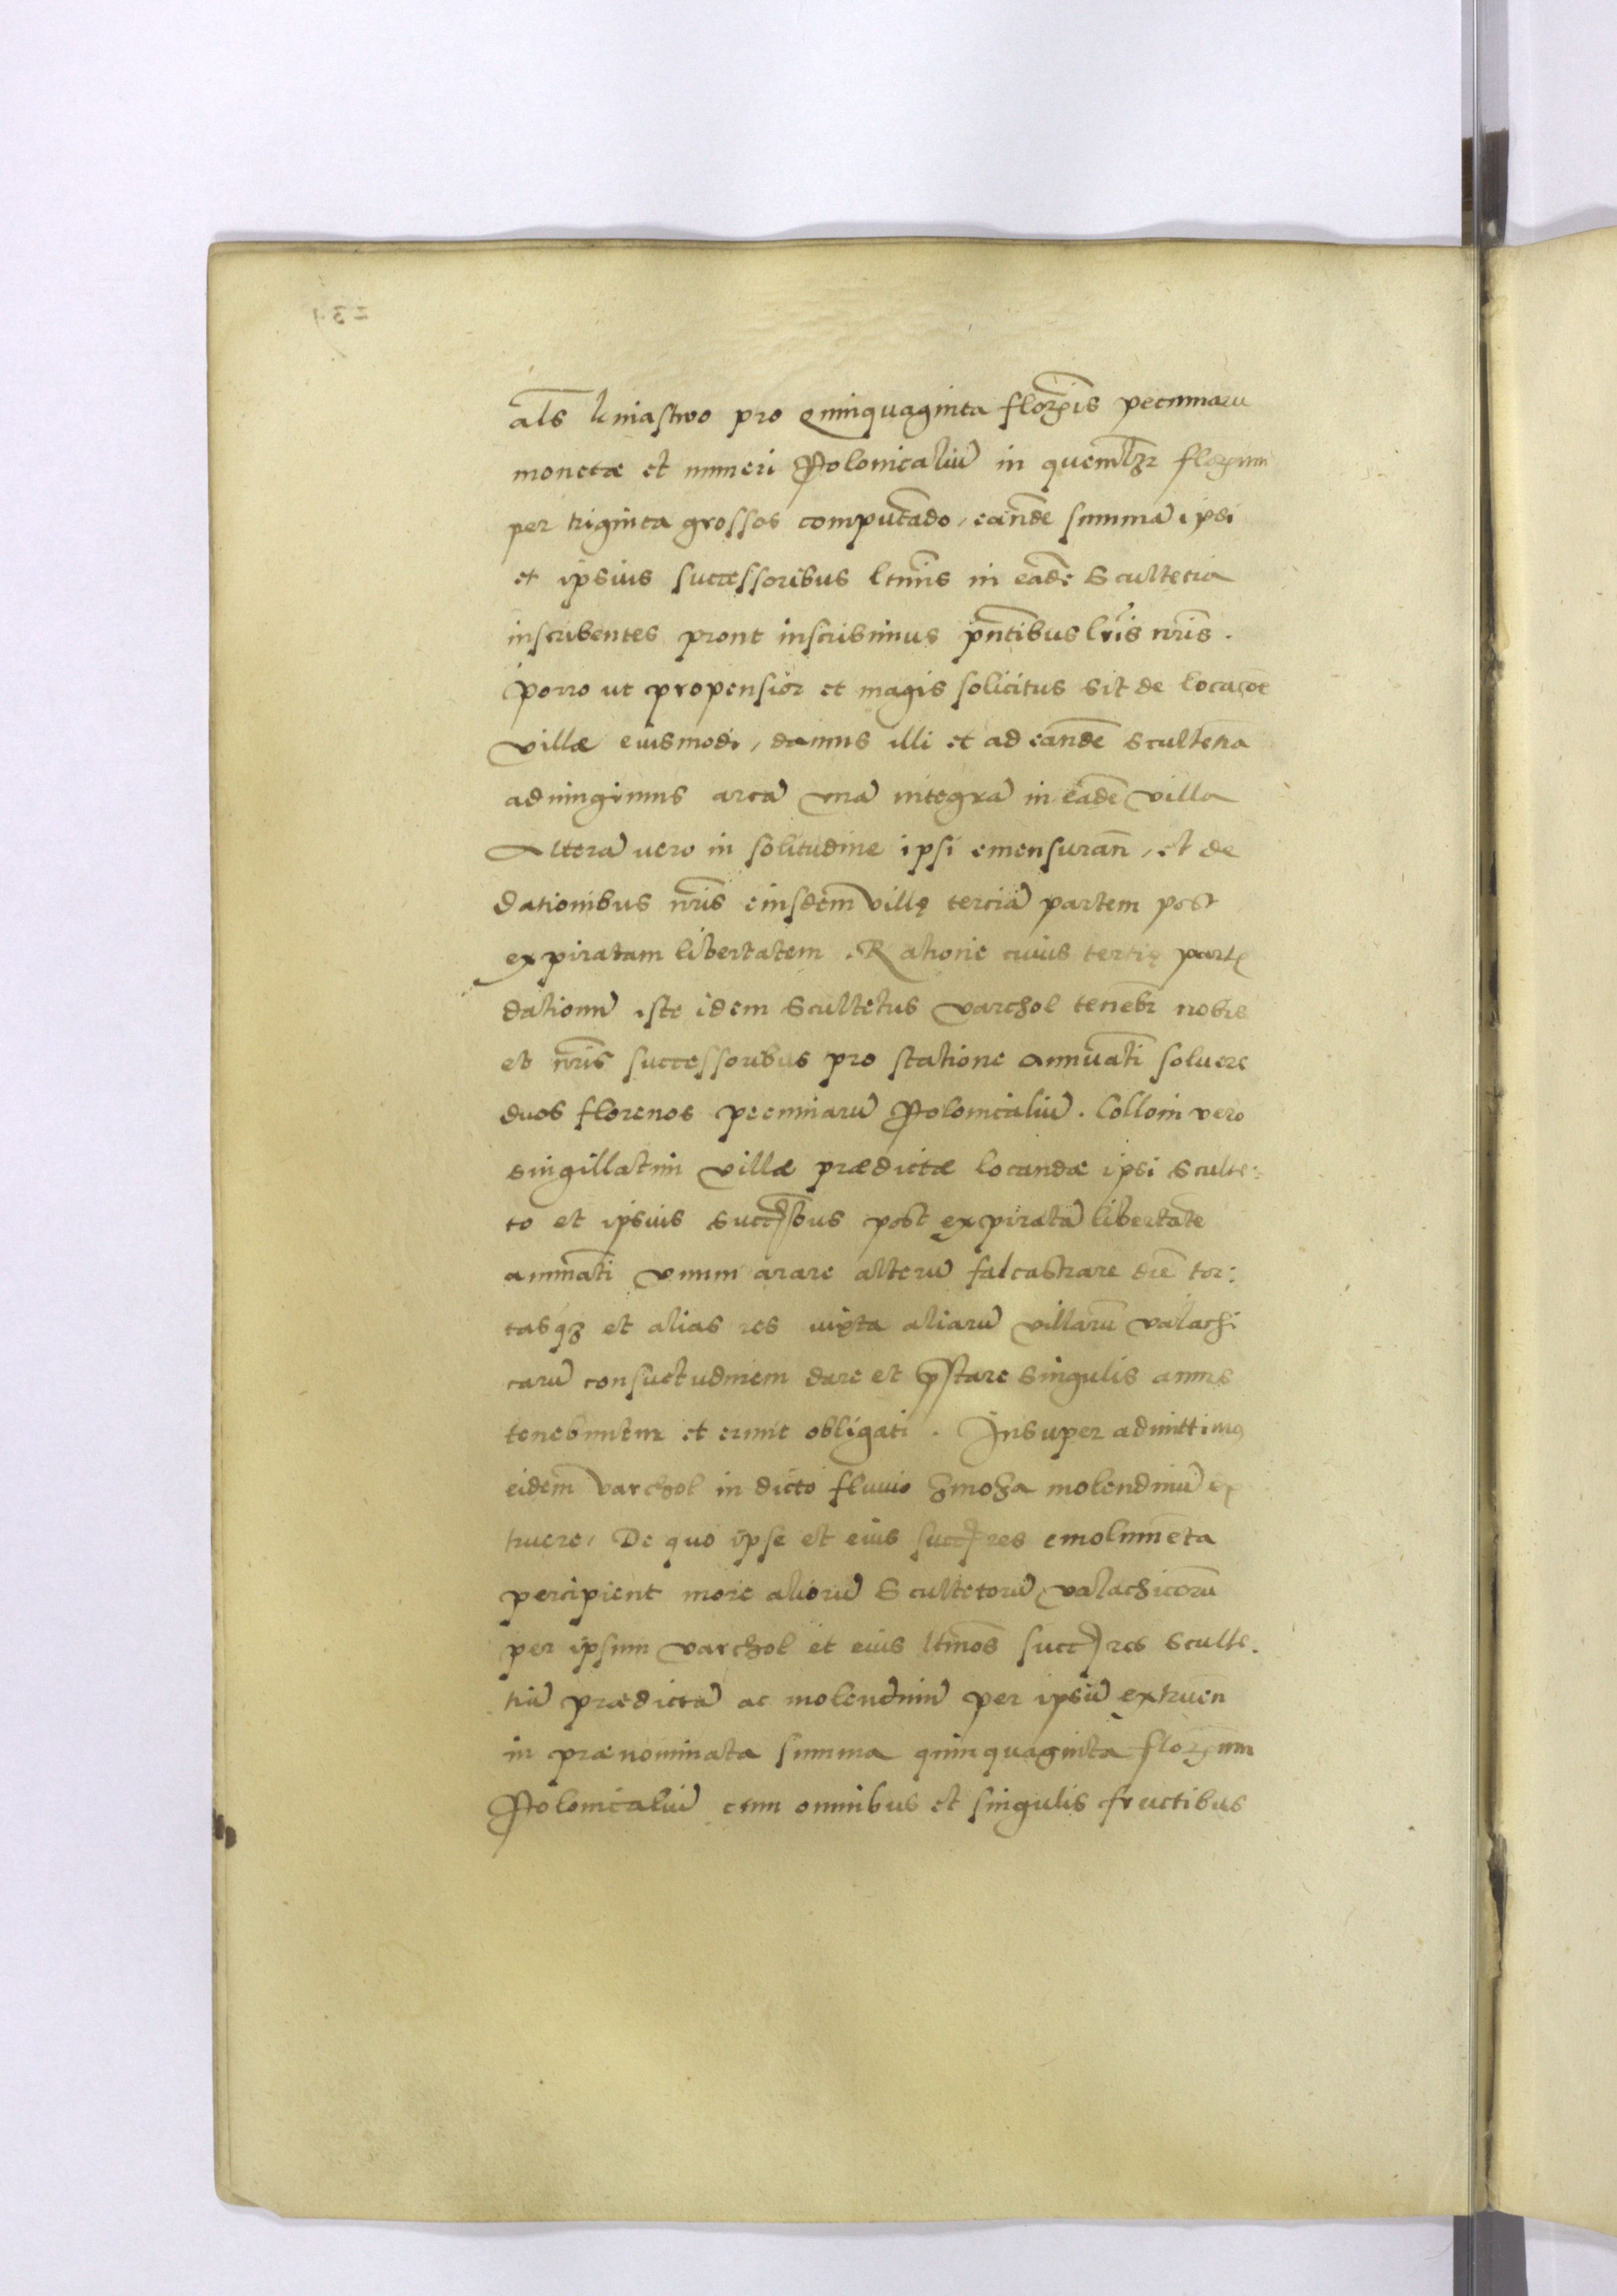 al͞s kniastwo pro Quinquaginta flor͞is pecuniarũ
monetæ et numeri Polonicaliũ in quemlꝫ florenum
per triginta grossos computãdo, eãndẽ summã ipsi
et ipsius successoribus ltim͞is in eãdẽ Scultetia
inscribentes prout inscribimus p͞ntibus lr͞is nr͞is.
Porro ut propensior et magis solicitus sit de locac͞oe
villæ eiusmodi, damus illi et ad eandẽ scultetiã
adiungimus areã vnã integrã in eãdẽ villa
Alterã vero in solitudine ipsi emensuran͞, et de
dationibus nr͞is eiusdem villę terciã partem post
expiratam libertatem. Ratione cuius tertię partis
dationũ iste idem Scultetus Varchol tenebr nobis
et nr͞is successoribus pro statione annuati͞ soluere
duos florenos pecuniarũ Polonicaliũ. Colloni vero
singillatim villæ prædictæ locandæ ipsi Sculte:
to et ipsius succ͞bus post expiratã libertatẽ
annuati͞ vnum arare alterũ falcastrare diẽ tor:
tasqꝫ et alias res iuxta aliarũ villarũ valachi
carũ consuetudinem dare et p͞stare singulis annis
tenebuntur et erunt obligati. Insuper admittimus
eidem Varchol in dicto fluuio molendinũ ex
truere, De quo ipse et eius succ͞res emolumẽta
percipient more aliorũ Scultetorũ valachicorũ
per ipsum Varchol et eius ltimos succ͞res sculte.
tiã prædictã ac molendinũ per ipsũ extruen͞
in prænominata summa quinquaginta flor͞enum
Polonicaliũ cum omnibus et singulis fructibus